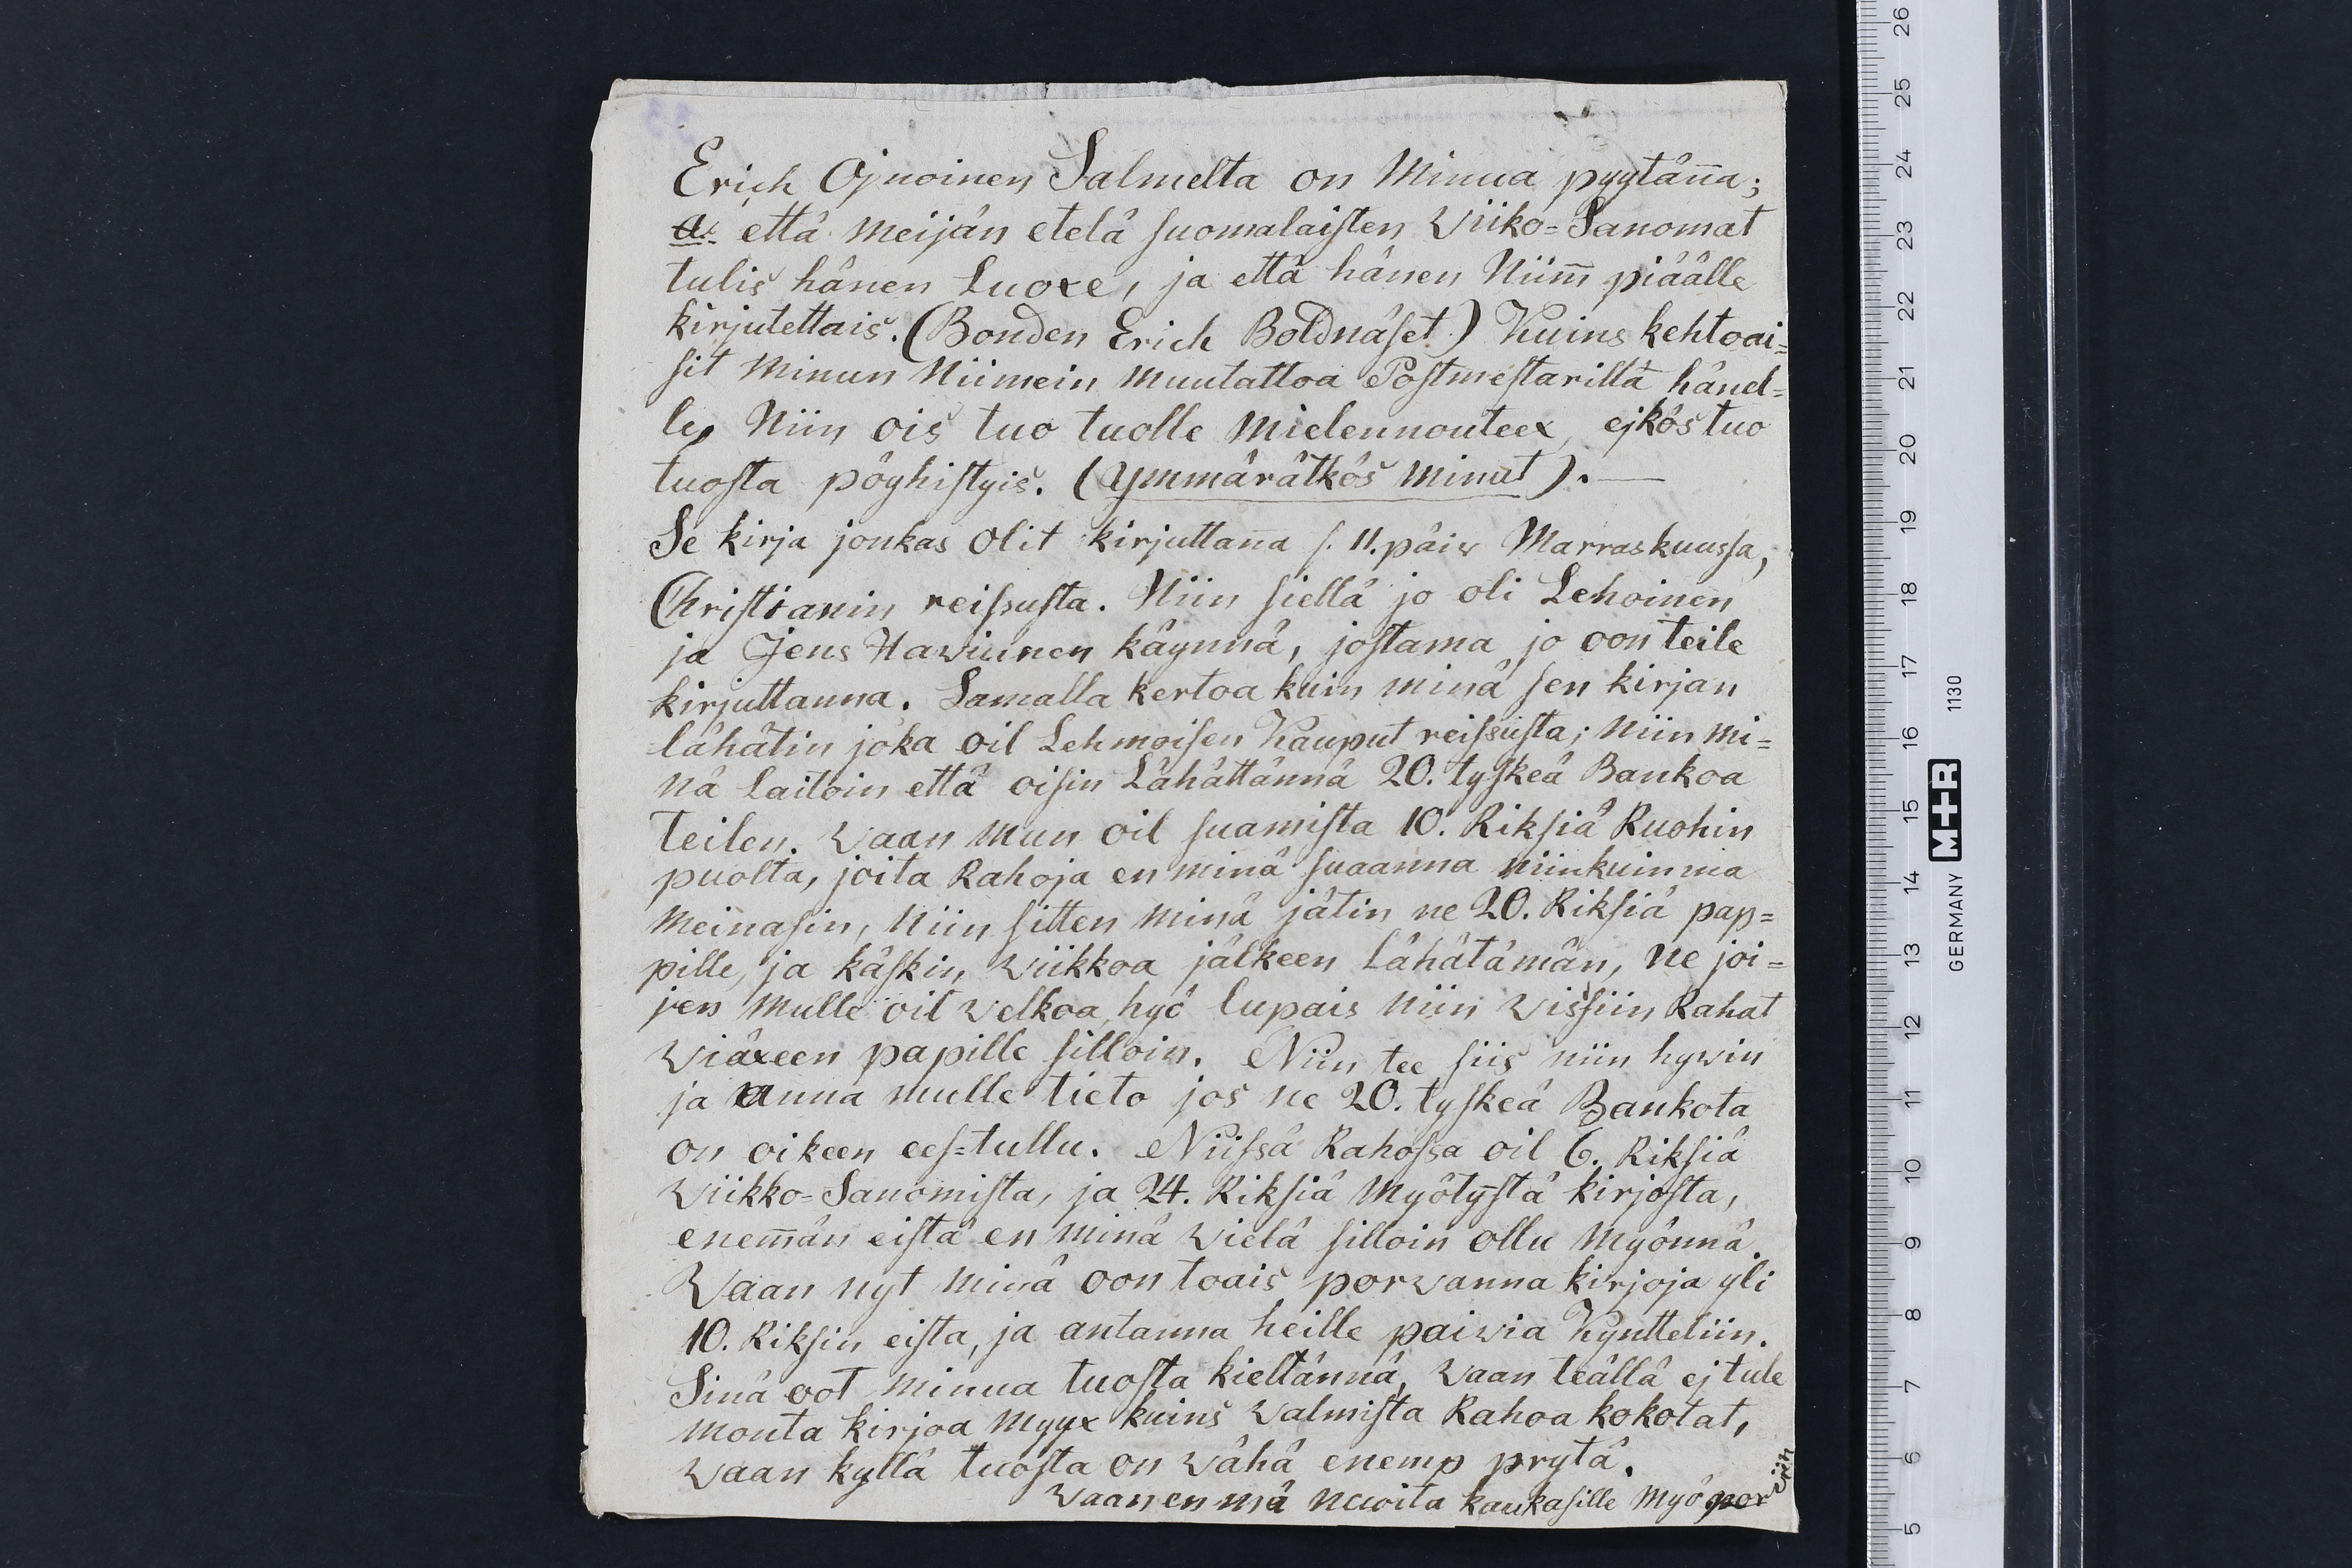 Erich Ojnoinen Salmelta on Minua pyytän̄a;
a. että meijän etelä suomalaisten Viiko=Sanomat
tulis hänen Luoxe, ja että hänen Niim̄ piäälle
kirjutettais. (Bonden Erich Boldnäset.) Kuins kehtoai=
sit Minun Niimein muutattoa Postmestarilla hänel=
le, Niin ois tuo tuolle Mielennouteex, ejkös tuo
tuosta pöyhistyis. (Ymmärätkös Minut). —
Se kirja jonkas Olit kirjuttan̄a s. 11. päiv Marraskuussa,
Christianin reissusta. Niin siellä jo oli Lehoinen
ja Jens Hawuinen käynnä, jostama jo oon teile
kirjuttanna. Samalla kertoa kuin minä sen kirjan
lähätin joka oil Lehmoisen Kauput reissusta; Niin mi=
nä laitoin että oisin Lähättännä 20. tyskeä Bankoa
Teilen. Vaan Mun oil suamista 10. Riksiä Ruohin
puolta, joita Rahoja en minä suaanna niinkuin ma
Meinasin, Niin sitten Minä jätin ne 20. Riksiä pap=
pille, ja käskin Viikkoa jälkeen Lähätämän, Ne joi=
jen Mulle oil Velkoa, hyö lupais Niin Vissiin Rahat
Viäxeen papille silloin. Niin tee siis niin hywin
ja anna mulle tieto jos ne 20. tyskeä Bankota
on oikeen ees=tullu. Niissä Rahossa oil 6. Riksiä
Viikko=Sanomista, ja 24. Riksiä Myötystä kirjosta,
enem̄än eistä en Minä Vielä silloin ollu Myönnä.
Vaan nyt Minä oon toais porvanna kirjoja yli
10. Riksin eista, ja antanna heille paivia Kyntteliin.
Sinä oot Minua tuosta kieltännä, Vaan teällä ej tule
Monta kirjoa Myyx kuins Valmista Rahoa kokotat,
Vaan kyllä tuosta on Vähä enemp prytä.
Vaan en mä nuoita kaukasille Myö por
Viin